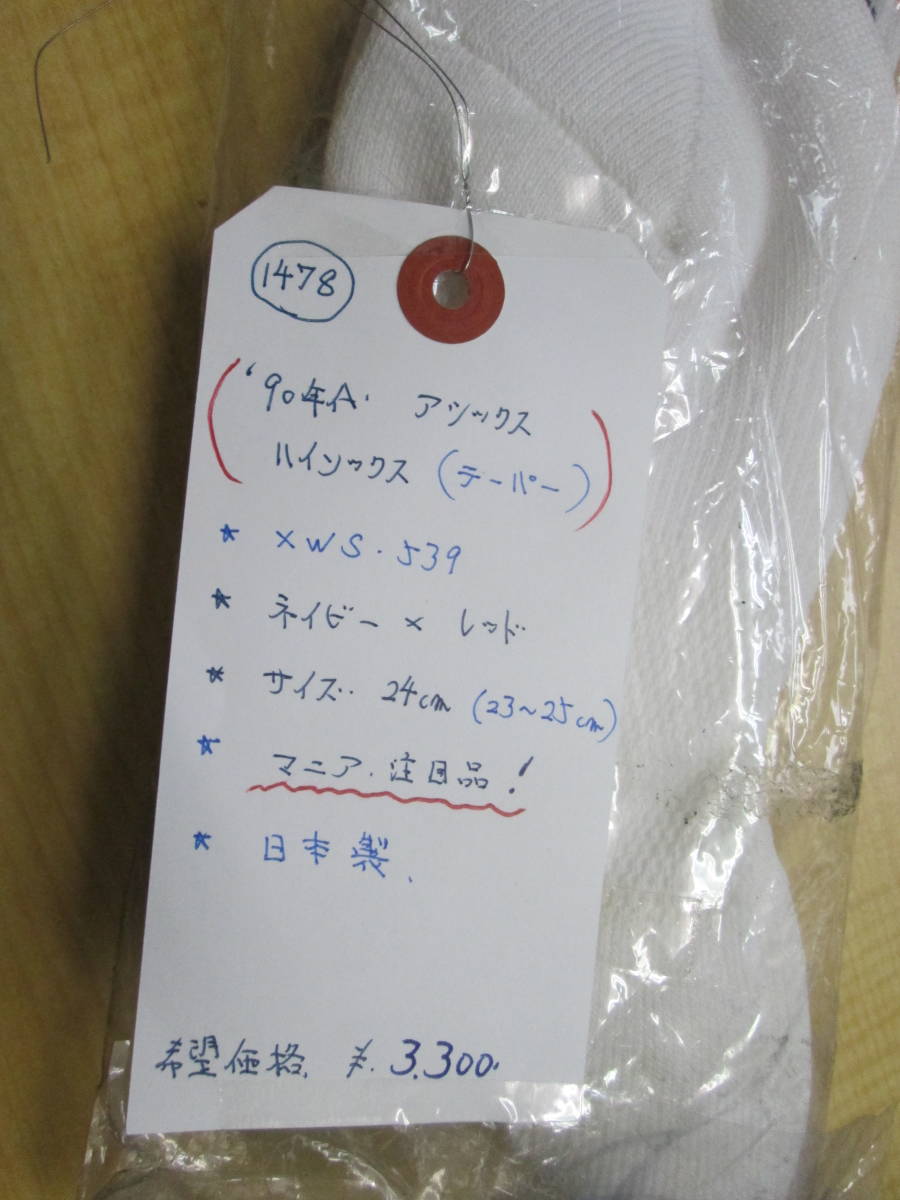 1478
'90年代. アシックス
ハイソックス (テーパー)
* XWS.539
* ネイビー × レッド
* サイズ. 24cm (23~25cm)
* マニア.注目品!
* 日本製.
希望価格. ¥.3.300.